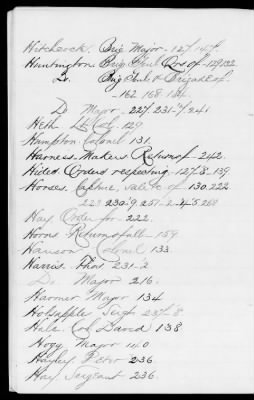 Hitchcock. Brig Major - 127.
Huntington. Brig Genl Qrs of - 129 132
Do. Brig Genl & Brigade of
- 162 168
Do Major. 227. 231- 241
Heth Lt Col. 129
Hampton Colonel 131.
Harness. Makers Return of - 242.
Hides Orders respecting. 127. 8. 139.
Horses. Capture, sale &c of 130. 222
223 230-9. 257-2. 268
Hay Order for 222.
Horns. Return of all - 159.
Hanson Colonel 133.
Harris. Thos 231-2
Do. Major 216.
Harmer Major 134
Holsapple Sergt 237. 8
Hale. Col David 138
Hogg Major 140
Hayley Peter 236.
Hay, Sergeant 236.